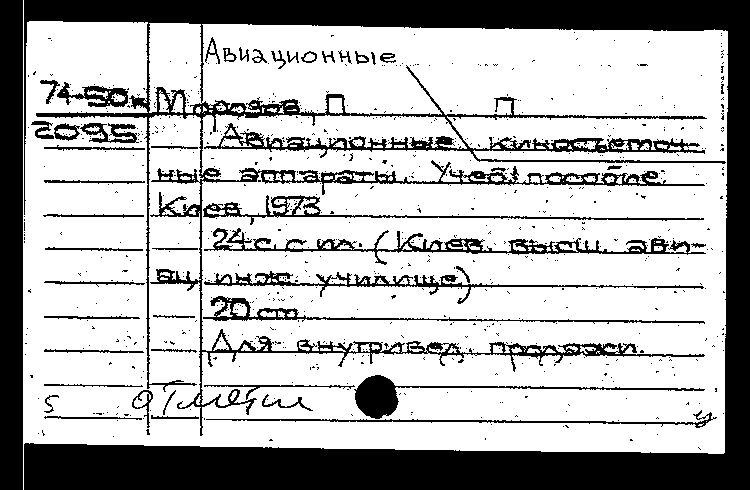 Авиационные
74-50к Морозов, П П
2095 Авиационные киносъемоч-
ные аппараты. Учеб. пособие.
Киев, 1973.
24 с. с ил. (Киев. высш. ави-
ац. инж. училище)
20 см
Для внутривед. продажи.
s отметил у